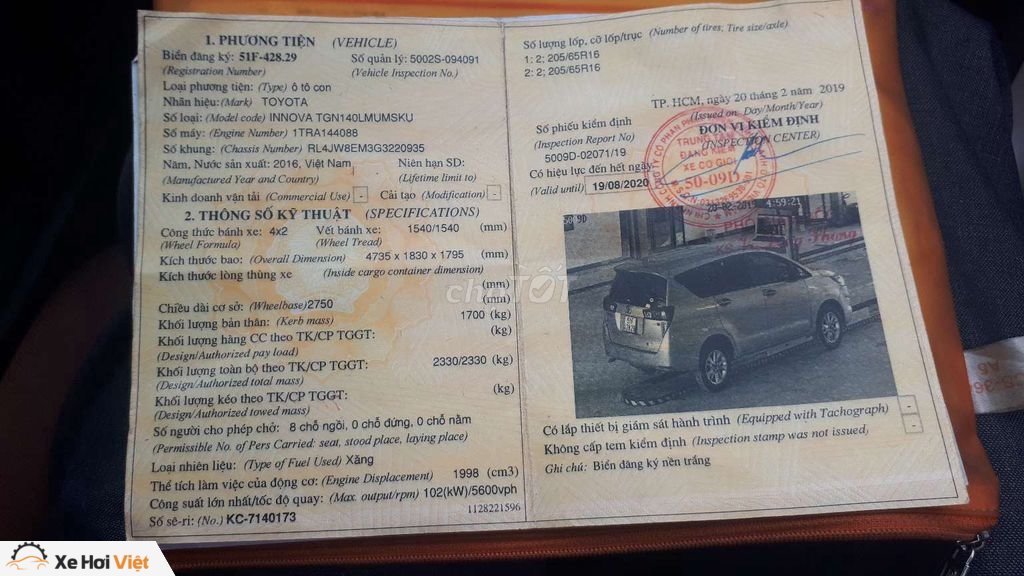 1. PHƯƠNG TIỆN (VEHICLE)
Biển đăng ký: 51F-428.29 Số quản lý: 5002S-094091
(Registration Number) (Vehicle Inspection No.)
Loại phương tiện: (Type) ô tô con
Nhãn hiệu: (Mark) TOYOTA
Số loại: (Model code) INNOVA TGN140LMUMSKU
Số máy: (Engine Number) 1TRA144088
Số khung: (Chassis Number) RL4JW8EM3G3220935
Năm, Nước sản xuất: 2016, Việt Nam Niên hạn SD:
(Manufactured Year and Country) (Lifetime limit to)
Kinh doanh vận tải (Commercial Use) - Cải tạo (Modification) -
2. THÔNG SỐ KỸ THUẬT (SPECIFICATIONS)
Công thức bánh xe: 4x2 Vết bánh xe: 1540/1540 (mm)
(Wheel Formula) (Wheel Tread)
Kích thước bao: (Overall Dimension) 4735 x 1830 x 1795 (mm)
Kích thước lòng thùng xe (Inside cargo container dimension)
(mm)
Chiều dài cơ sở: (Wheelbase) 2750 (mm)
Khối lượng bản thân: (Kerb mass) 1700 (kg)
Khối lượng hàng CC theo TK/CP TGGT: (kg)
(Design/Authorized pay load)
Khối lượng toàn bộ theo TK/CP TGGT: 2330/2330 (kg)
(Design/Authorized total mass)
Khối lượng kéo theo TK/CP TGGT: (kg)
(Design/Authorized towed mass)
Số người cho phép chở: 8 chỗ ngồi, 0 chỗ đứng, 0 chỗ nằm
(Permissible No. of Pers Carried: seat, stood place, laying place)
Loại nhiên liệu: (Type of Fuel Used) Xăng
Thể tích làm việc của động cơ: (Engine Displacement) 1998 (cm3)
Công suất lớn nhất/tốc độ quay: (Max. output/rpm) 102(kW)/5600vph
1128221596
Số sê-ri: (No.) KC-7140173
Số lượng lốp, cỡ lốp/trục (Number of tires; Tire size/axle)
1: 2; 205/65R16
2: 2; 205/65R16
TP. HCM, ngày 20 tháng 2 năm 2019
(Issued on: Day/Month/Year)
Số phiếu kiểm định ĐƠN VỊ KIỂM ĐỊNH
(Inspection Report No) (INSPECTION CENTER)
5009D-02071/19
Có hiệu lực đến hết ngày
(Valid until) 19/08/2020
TRUNG TÂM
ĐĂNG KIỂM
XE CƠ GIỚI
50-09D
20-02-2019 4:59:21
9D
chợTỐT
Có lắp thiết bị giám sát hành trình (Equipped with Tachograph) -
Không cấp tem kiểm định (Inspection stamp was not issued) -
Ghi chú: Biển đăng ký nền trắng
Xe Hơi Việt